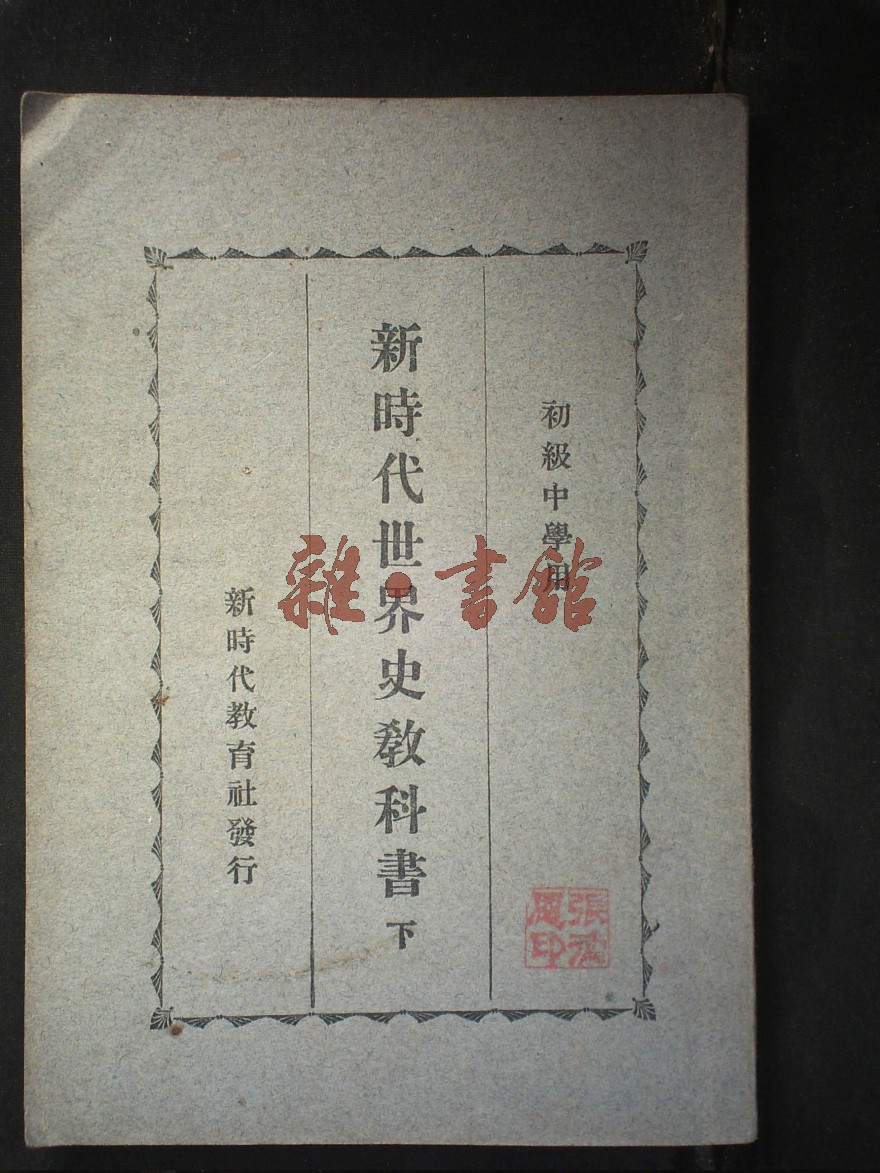 初級中學用
新時代世界史教科書 下
新時代教育社發行
雜·書館